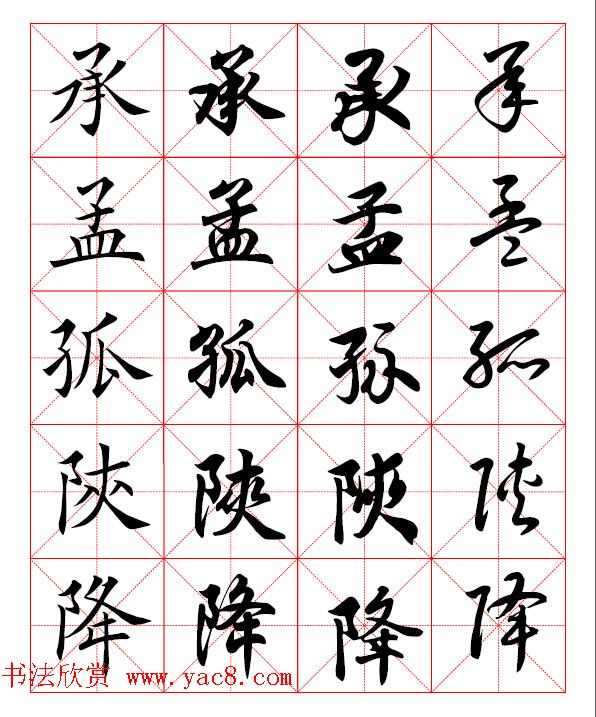 承承承承
孟孟孟孟
孤孤孤孤
陝陝陝陝
降降降降
书法欣赏 www.yac8.com